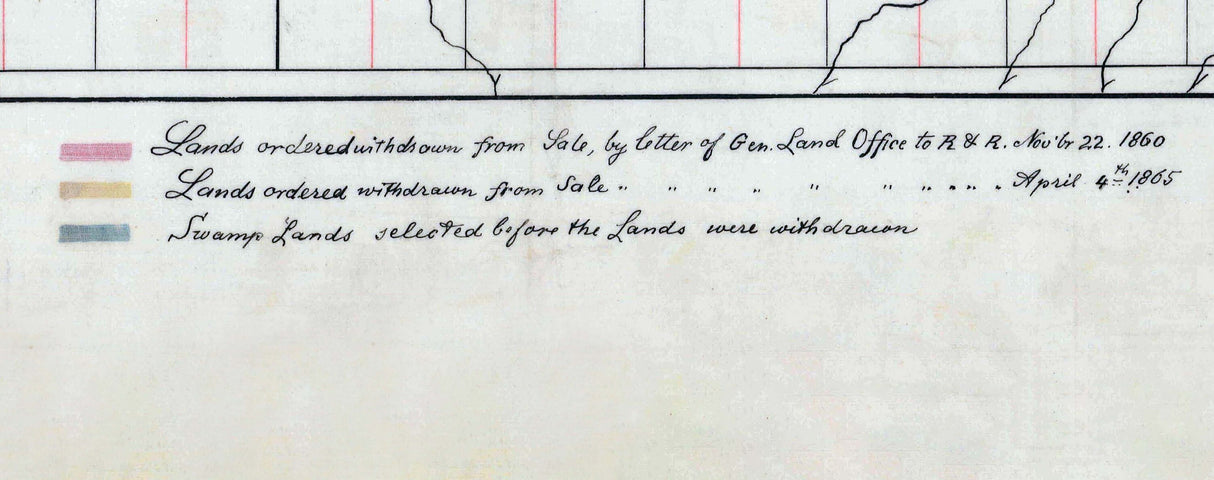 Lands ordered withdrawn from Sale, by letter of Gen. Land Office to R & R. Nov'br 22. 1860
Lands ordered withdrawn from Sale " " " " " " " " " " April 4th 1865
Swamp Lands selected before the Lands were withdrawn